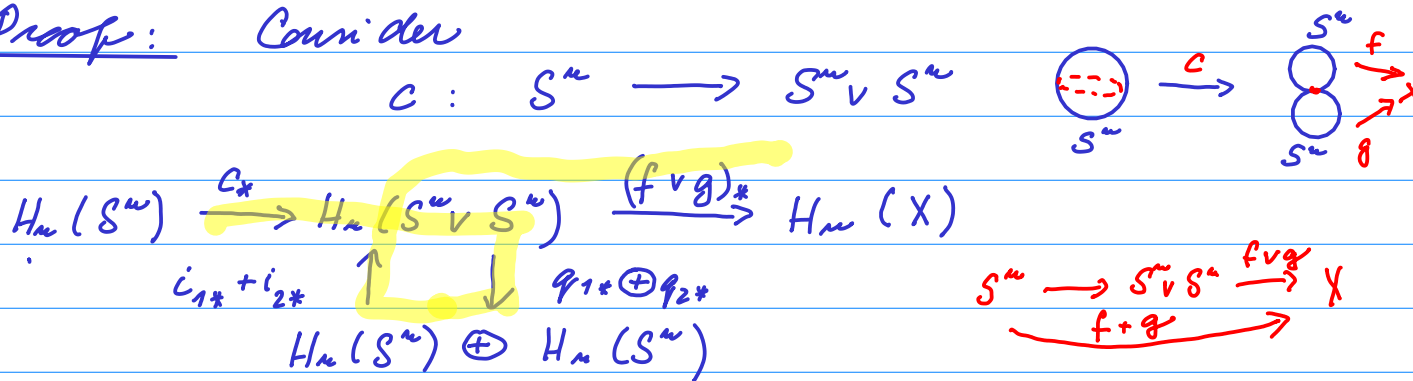 Proof: Consider
c : Sⁿ ⟶ Sⁿ ∨ Sⁿ
Sⁿ
c
Sⁿ
f
Sⁿ
g
Hₙ(Sⁿ) ⟶ Hₙ(Sⁿ ∨ Sⁿ) ⟶ Hₙ(X)
c_*
(f ∨ g)_*
i₁_* + i₂_*
q₁_* ⊕ q₂_*
Hₙ(Sⁿ) ⊕ Hₙ(Sⁿ)
Sⁿ ⟶ Sⁿ ∨ Sⁿ ⟶ X
f ∨ g
f + g